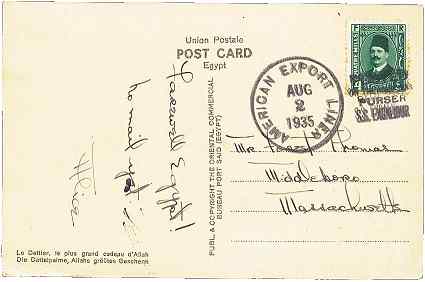 Union Postale
POST CARD
Egypt
Farewell Egypt!
no mail yet
Alice
PUBL. & COPYRIGHT THE ORIENTAL COMMERCIAL
BUREAU PORT SAID (EGYPT)
Le Dattier, le plus grand cadeau d'Allah
Die Dattelpalme, Allahs größtes Geschenk
AMERICAN EXPORT LINES
AUG
2
1935
PURSER
S.S. EXCALIBUR
Mr. Thomas
Middleboro
Massachusetts